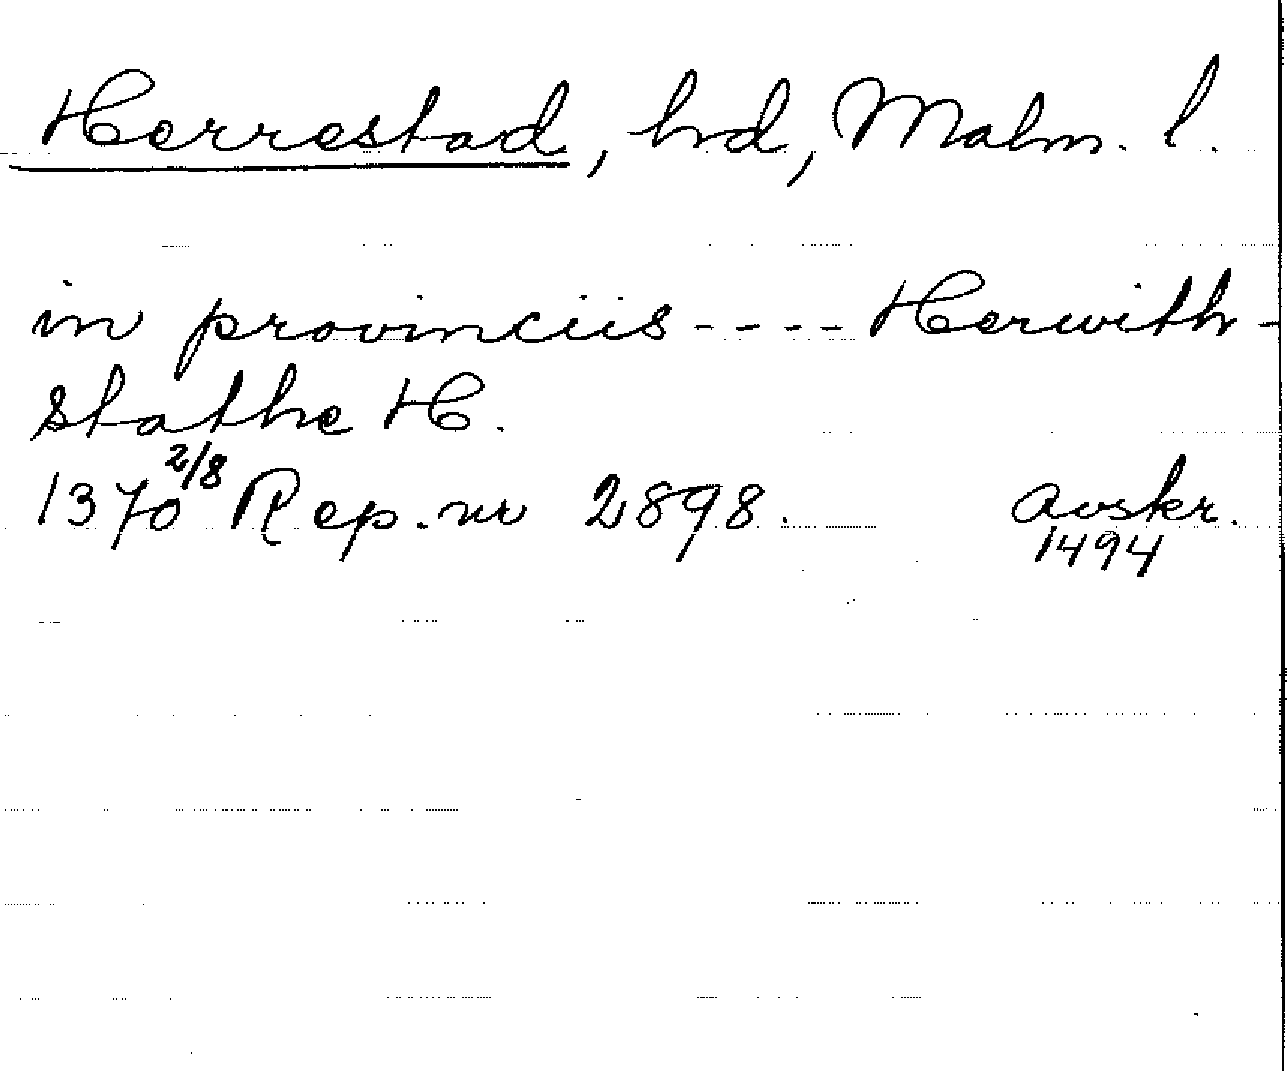 Herrestad, hrd, Malm. l.
in provinciis - - - - Herwith-
stathe H.
1370 2/8 Rep. nr 2898. avskr.
1494